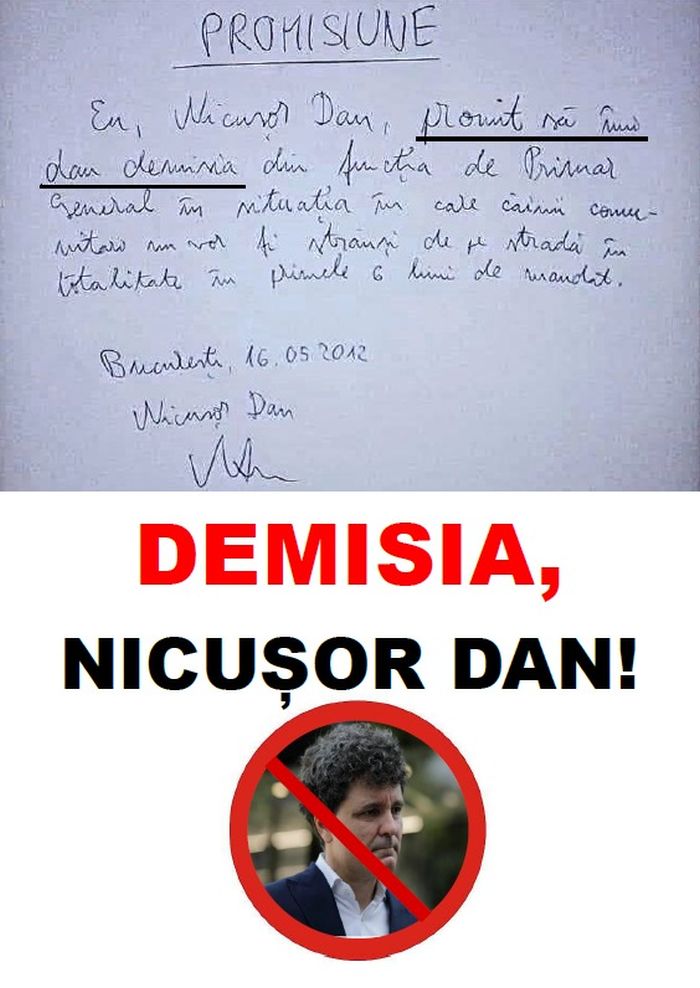 PROMISIUNE
Eu, Nicușor Dan, promit să îmi
dau demisia din funcția de Primar
General în situația în care câinii comu-
nitari nu vor fi strânși de pe stradă în
totalitate în primele 6 luni de mandat.
București, 16.05.2012
Nicușor Dan
DEMISIA,
NICUȘOR DAN!